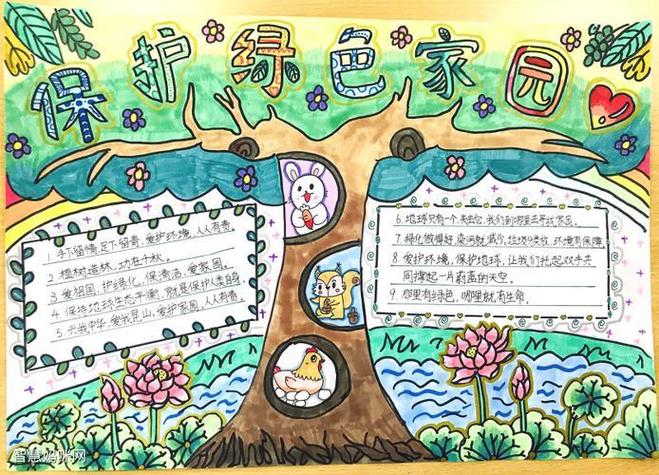 保护绿色家园
1 手下留情,足下留青,爱护环境,人人有责。
2 植树造林,功在千秋。
3 爱祖国,护绿化,保清洁,爱家园。
4 保持地球生态平衡,就是保护人类自身。
5 兴我中华,爱我昆山,爱护家园,人人有责。
6. 地球只有一个,失去它,我们到哪里去寻找家园。
7. 绿化做得好,
8. 爱护环境,保护地球,让我们托起双手共
同撑起一片蔚蓝的天空。
9 哪里有绿色,哪里就有生命。
智慧妈咪网